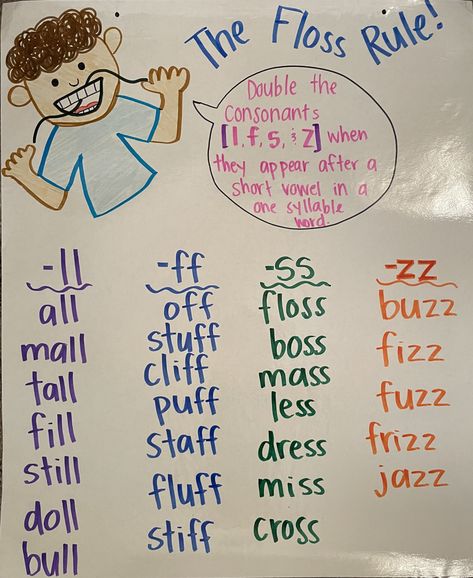 The Floss Rule!
Double the
Consonants
[l, f, s, & z] when
they appear after a
short vowel in a
one syllable
word.
-ll
all
mall
tall
fill
still
doll
bull
-ff
off
stuff
cliff
puff
staff
fluff
stiff
-ss
floss
boss
mass
less
dress
miss
cross
-zz
buzz
fizz
fuzz
frizz
jazz